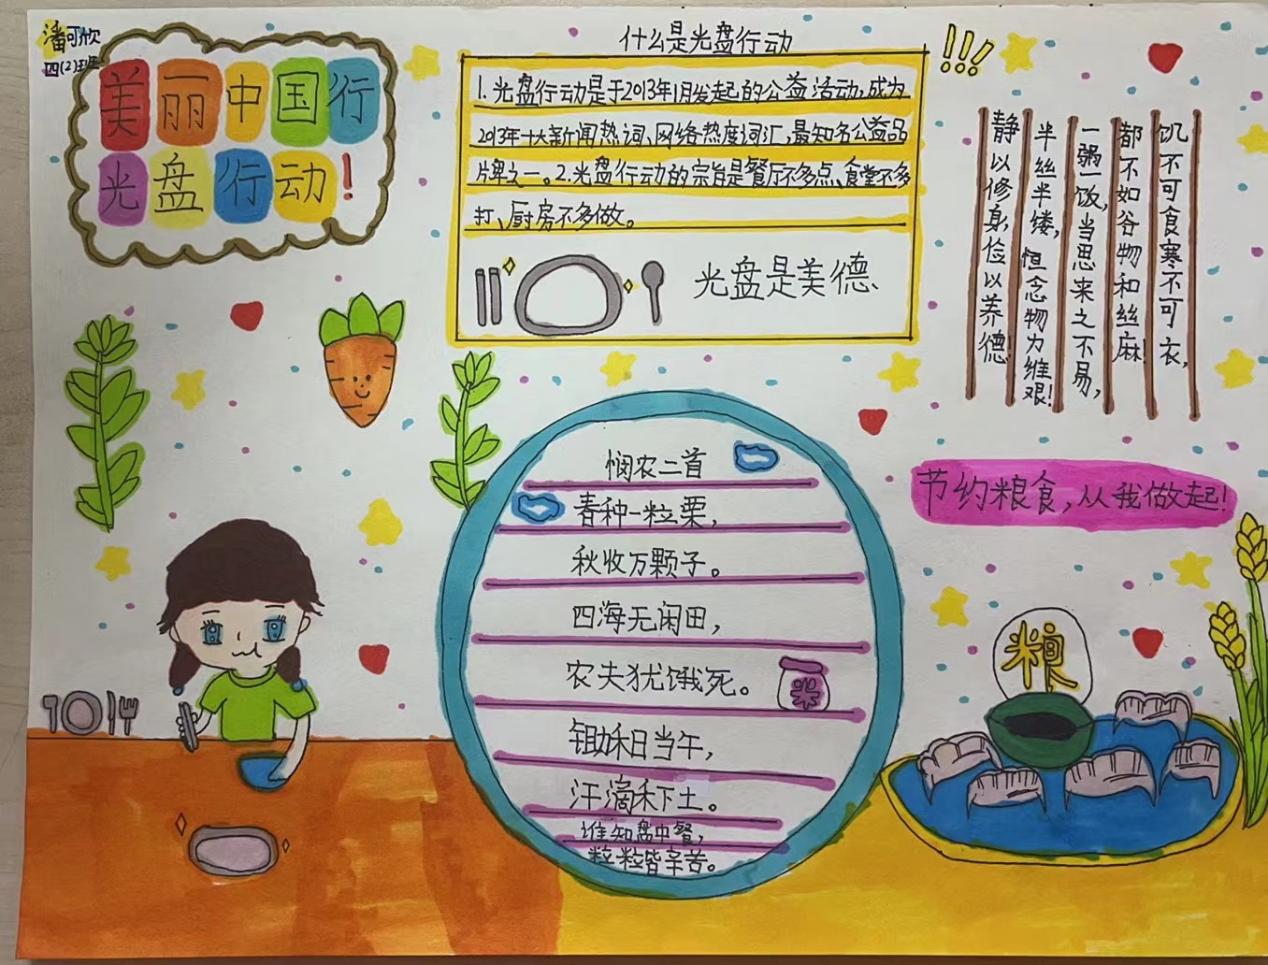 潘可欣
四(2)班
美丽中国行
光盘行动!
什么是光盘行动
!!!
1.光盘行动是于2013年1月发起的公益活动,成为
2013年十大新闻热词、网络热度词汇,最知名公益品
牌之一。2.光盘行动的宗旨是餐厅不多点、食堂不多
打、厨房不多做。
光盘是美德、
饥不可食寒不可衣,
都不如谷物和丝麻
一粥一饭,当思来之不易,
半丝半缕,恒念物力维艰!
静以修身,俭以养德
节约粮食,从我做起!
悯农二首
春种一粒粟,
秋收万颗子。
四海无闲田,
农夫犹饿死。
米
锄禾日当午,
汗滴禾下土。
谁知盘中餐,
粒粒皆辛苦。
粮